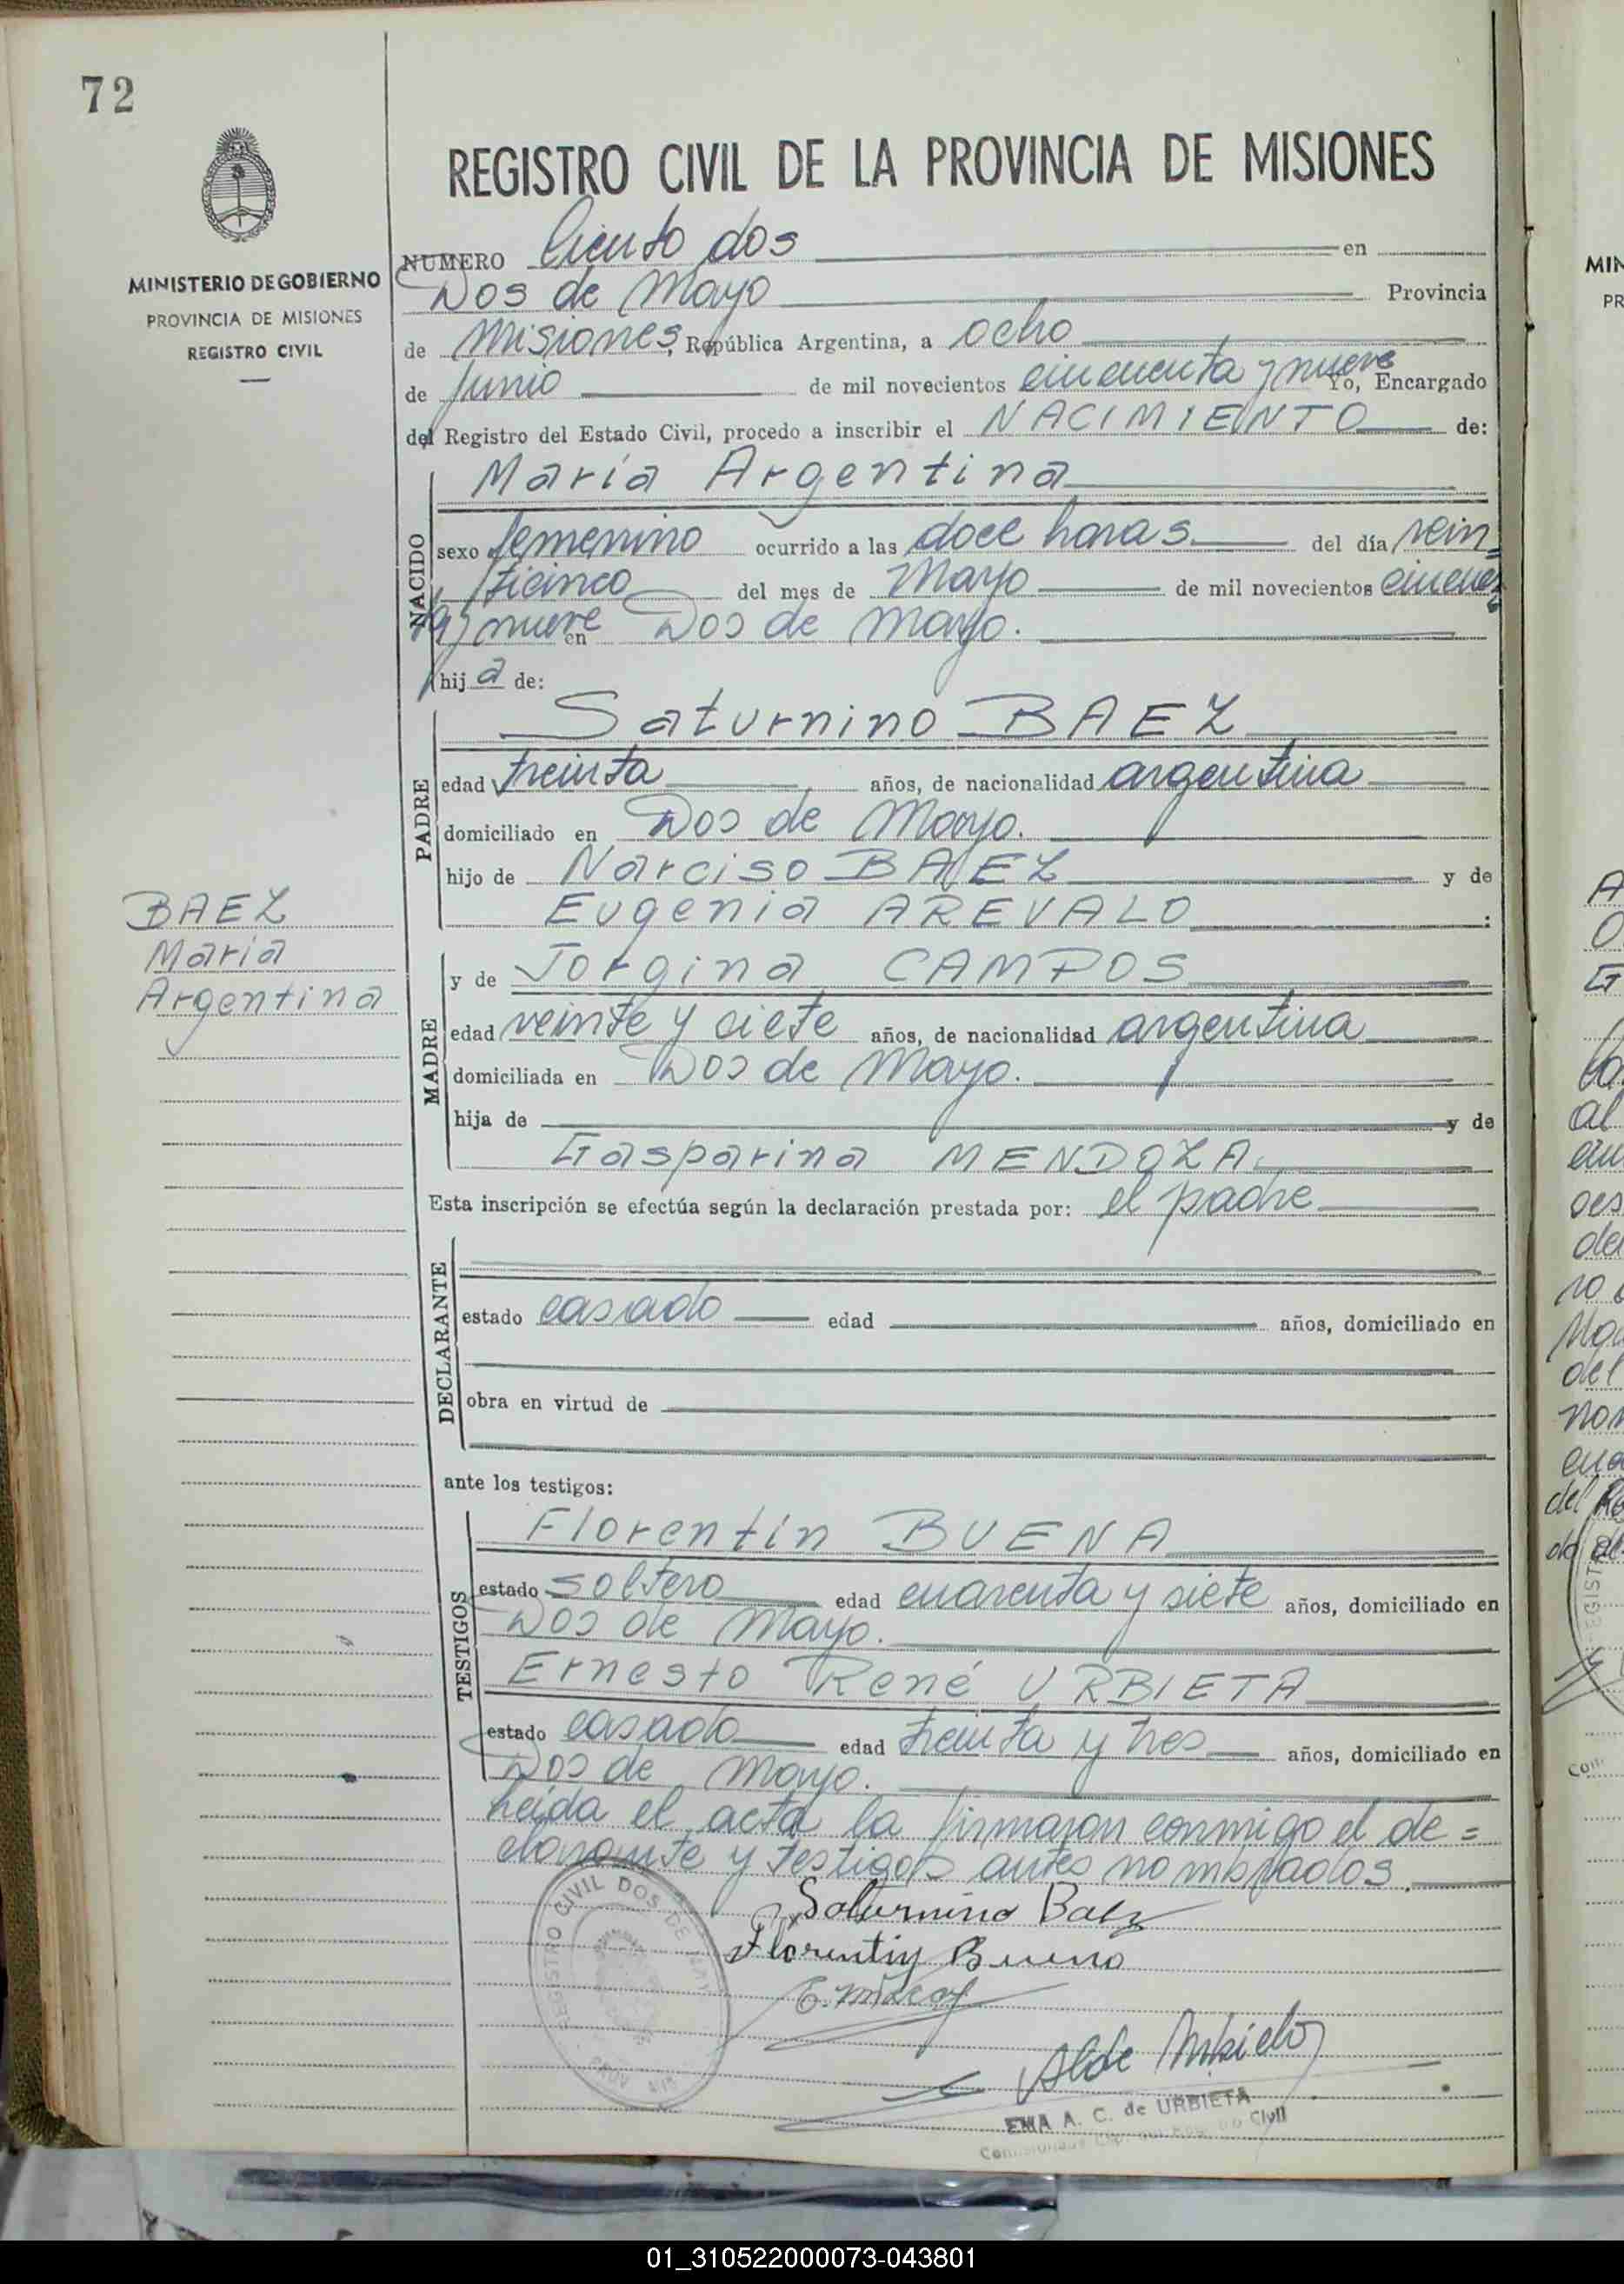 72
MINISTERIO DE GOBIERNO
PROVINCIA DE MISIONES
REGISTRO CIVIL
REGISTRO CIVIL DE LA PROVINCIA DE MISIONES
NUMERO Ciento dos en
Dos de Mayo Provincia
de Misiones, República Argentina, a ocho
de Junio de mil novecientos cincuenta y nueve Yo, Encargado
del Registro del Estado Civil, procedo a inscribir el NACIMIENTO de:
María Argentina
NACIDO
sexo femenino ocurrido a las doce horas del día vein=
ticinco del mes de Mayo de mil novecientos cincuen=
ta y nueve en Dos de Mayo.
hij a de:
PADRE
Saturnino BAEZ
edad treinta años, de nacionalidad argentina
domiciliado en Dos de Mayo.
hijo de Narciso BAEZ y de
Eugenia AREVALO :
BAEZ
María
Argentina
MADRE
y de Jorgina CAMPOS
edad veinte y siete años, de nacionalidad argentina
domiciliada en Dos de Mayo.
hija de y de
Gasparina MENDOZA
Esta inscripción se efectúa según la declaración prestada por: el padre
DECLARANTE
estado casado edad años, domiciliado en
obra en virtud de
ante los testigos:
TESTIGOS
Florentín BUENA
estado soltero edad cuarenta y siete años, domiciliado en
Dos de Mayo.
Ernesto René URBIETA
estado casado edad treinta y tres años, domiciliado en
Dos de Mayo.
Leída el acta la firmaron conmigo el de=
clarante y testigos antes nombrados.
Saturnino Baez
Florentin Bueno
REGISTRO CIVIL DOS DE MAYO
PROV MIS
A. C. de URBIETA
Civil
01_310522000073-043801